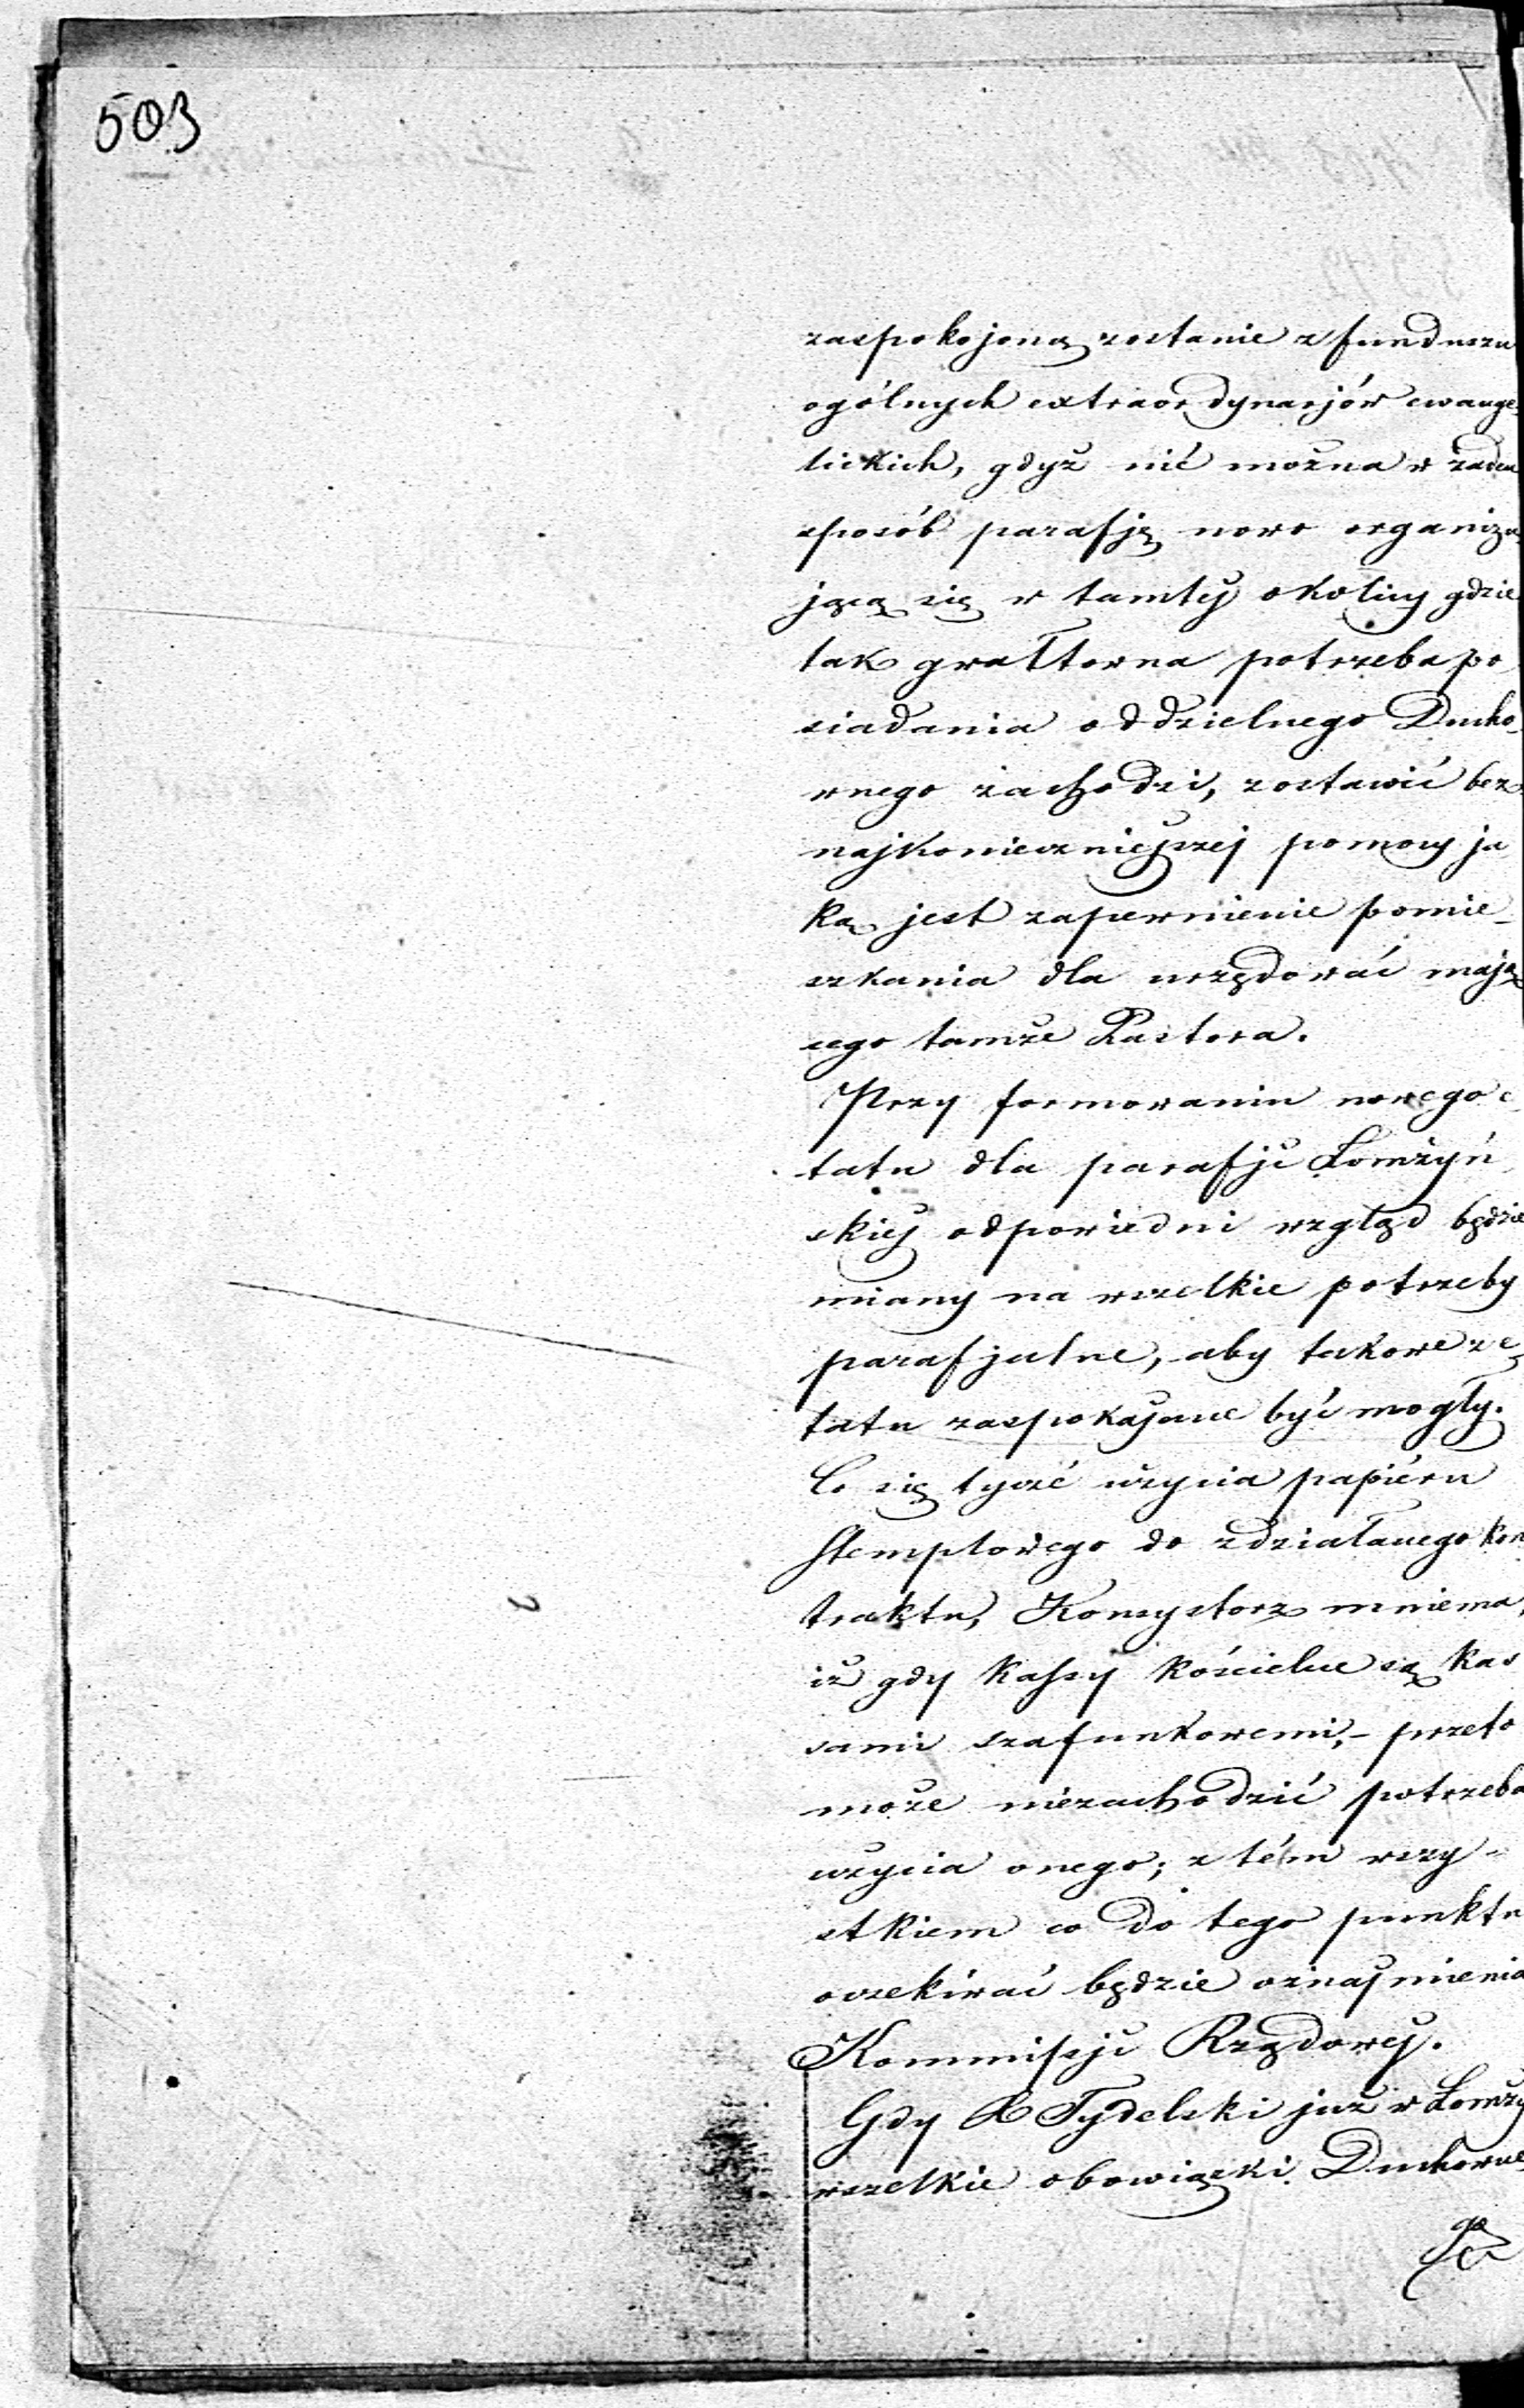 503
zaspokojoną zostanie z funduszu
ogólnych extraordynarjów ewange-
lickich, gdyż nie można w żaden
sposób parafję nowo organizu-
jącą się w tamtéj okolicy gdzie
tak gwałtowna potrzeba po-
siadania oddzielnego Ducho-
wnego zachodzi, zostawić bez
najkonieczniejszej pomocy ja-
ką jest zapewnienie pomie-
szkania dla urzędować mają
cego tamże Pastora.
Przy formowaniu nowego e-
tatu dla parafji Łomżyń-
skiéj odpowiedni wzgląd będzie
miany na wszelkie potrzeby
parafjalne, aby takowe z e-
tatu zaspokajane być mogły.
Co się tycze użycia papiéru
stemplowego do zdziałanego kon
traktu, Konsystorz mniema,
iż gdy kassy kościelne są kas
sami szafunkowemi,- przeto
może niezachodzić potrzeba
użycia onego; z tém wszy-
stkiem co do tego punktu
oczekiwać będzie oznajmienia
Kommissji Rządowéj.
Gdy X Tydelski już w Łomży
wszelkie obowiązki Duchowne